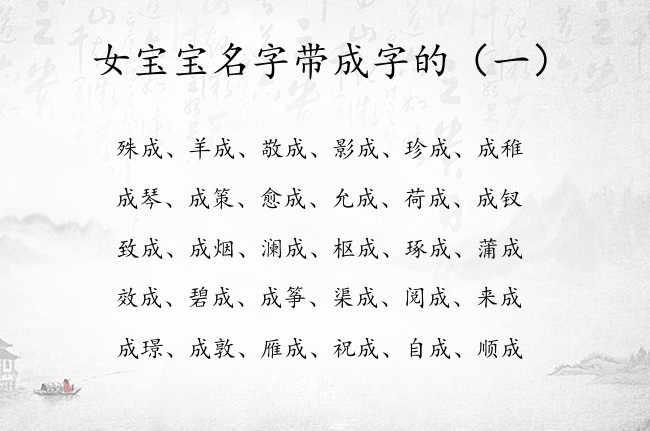 女宝宝名字带成字的（一）
殊成、羊成、敬成、影成、珍成、成稚
成琴、成策、愈成、允成、荷成、成钗
致成、成烟、澜成、枢成、琢成、蒲成
效成、碧成、成筝、渠成、阅成、来成
成璟、成敦、雁成、祝成、自成、顺成